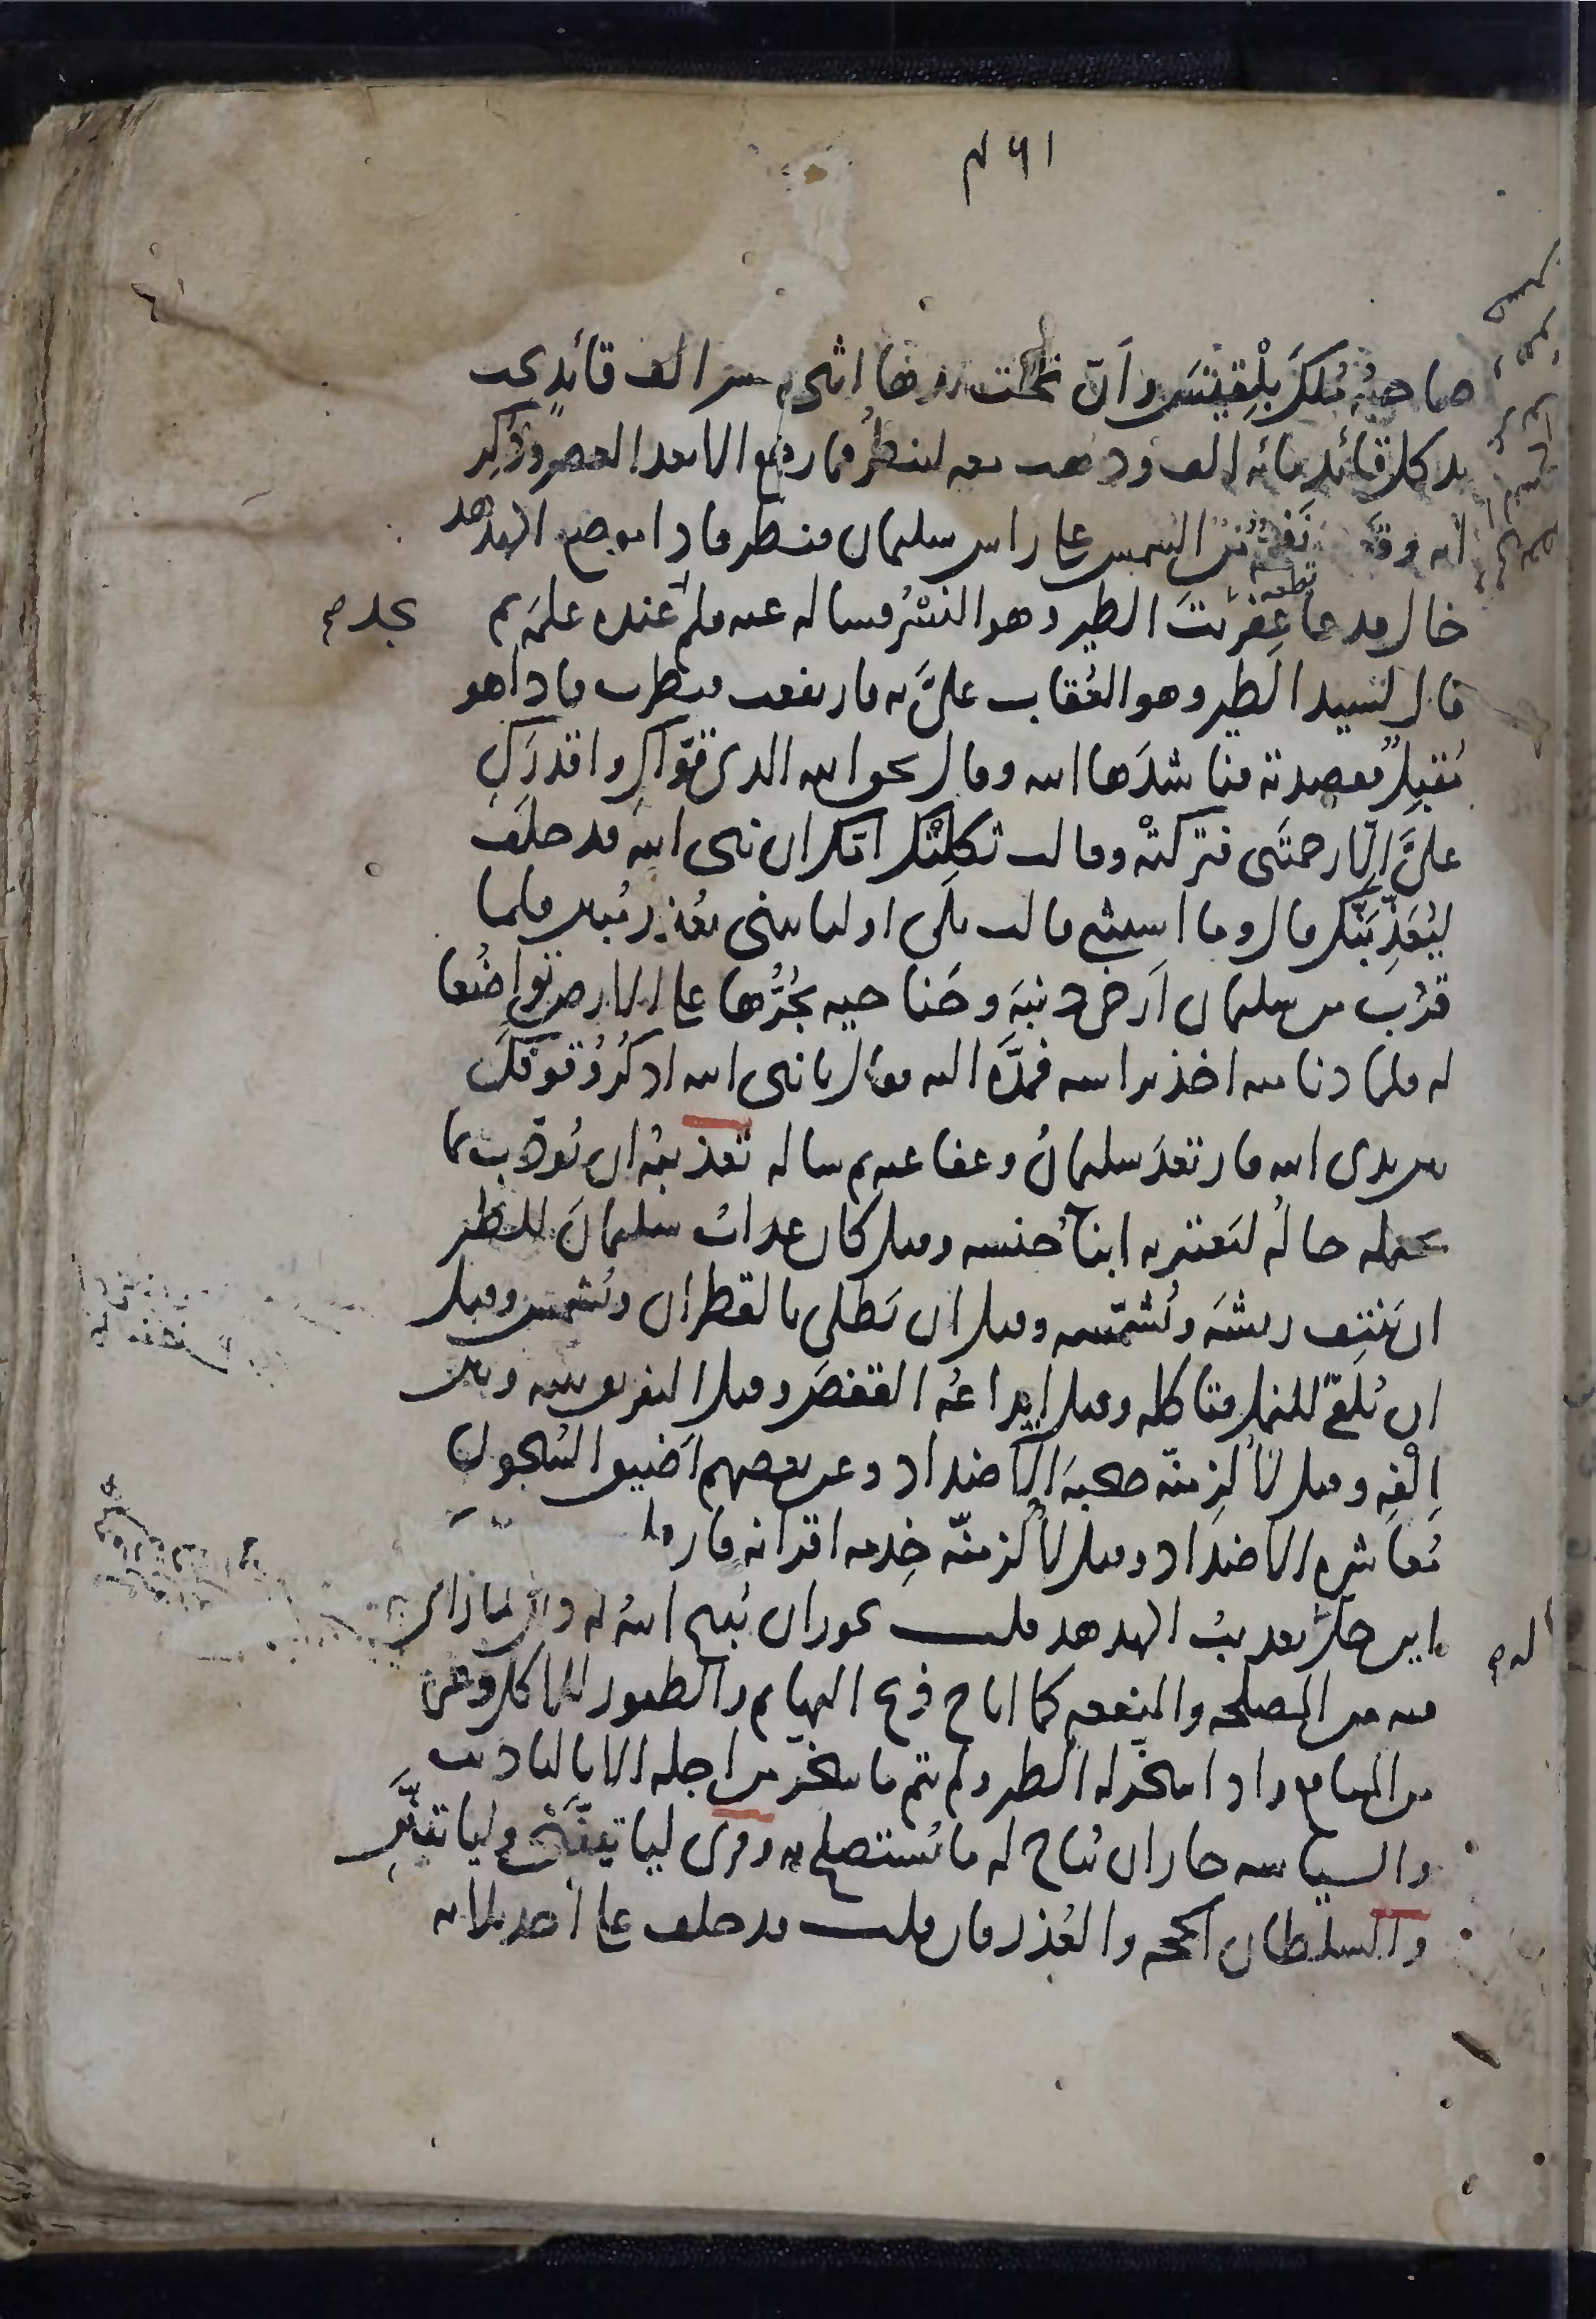 ٤٦١
صاحبه مُلكَ بلْقيسَ وأنّ تحت يدها اثني عشر الف قائدٍ تحت
يد كل قائد مائه الف وذهب معه لينظُر فما رجع الا بعد العصر وذُكِر
انه وقعت نفحة من الشمس على راس سليمان فنظر فاذا موضع الهدهد
خال فدعا عِفرِيتَ الطير وهو النَّسْرُ فساله عنه فلم يجد عنده علمَه ثم
قال لسيد الطير وهو العُقاب علىَّ به فارتفعت فنظرت فاذا هو
مُقبِلٌ فقصدته فناشدَها الله وقال بحق الله الذى قوّاكِ واقدرَكِ
علىَّ إلّا رحمتَنى فتركتْه وقالت ثكِلتْك امّك ان نبى الله قد حلَف
ليُعَذِّبَنَّك قال وما استثنى قالت بلَى او لياتينى بعُذرٍ مُبين فلما
قرُب من سليمان أرخى ذنبَه وجَناحيه يجُرُّها على الارض تواضُعا
له فلما دنا منه اخذ براسه فمدَّه اليه فقال يا نبى الله اذكُر وُقوفَك
بين يدى الله فارتعدَ سليمانُ وعفا عنه ثم ساله تعذيبُه ان يُؤدَّب بما
يحتمله حالُه ليَعتبر به ابناءُ جنسه وقيل كان عذابُ سليمانَ للطير
ان يَنتِف ريشَه ويُشمّسه وقيل ان يُطلى بالقطران ويُشمس وقيل
ان يُلقَى للنمل فتاكله وقيل ايداعُه القفصَ وقيل التفريق بينه وبين
اِلْفِه وقيل لأُلزِمنّه صحبةَ الاضداد وعن بعضهم أضيق السُجون
مُعاشرة الاضداد وقيل لأُلزمنّه خِدمة اقرانه فان قلت
من اين حلّ له تعذيبُ الهدهد قلت يجوز ان يُبيح اللهُ له ذلك لما راى
فيه من المصلحه والمنفعه كما اباح ذبح البهايم والطيور للاكل وغيره
من المنافع واذا سُخِّر له الطير ولم يتم ما سُخّر من اجله الا بالتاديب
والسياسه جاز ان يُباح له ما يُستصلح به وقرئ لياتينَّنى ولياتينَّنِ
والسلطان الحجه والعُذر فان قلت قد حلف على احد ثلاثه